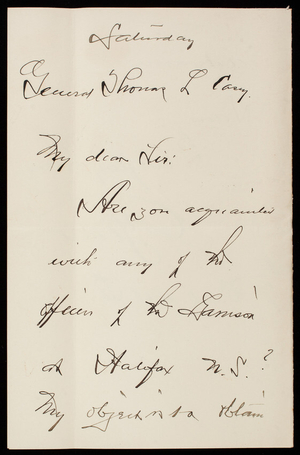 Saturday
General Thomas L Casey.
My dear Sir:
Are you acquainted
with any of the
officers of the Garrison
at Halifax N.S.?
My object is to obtain